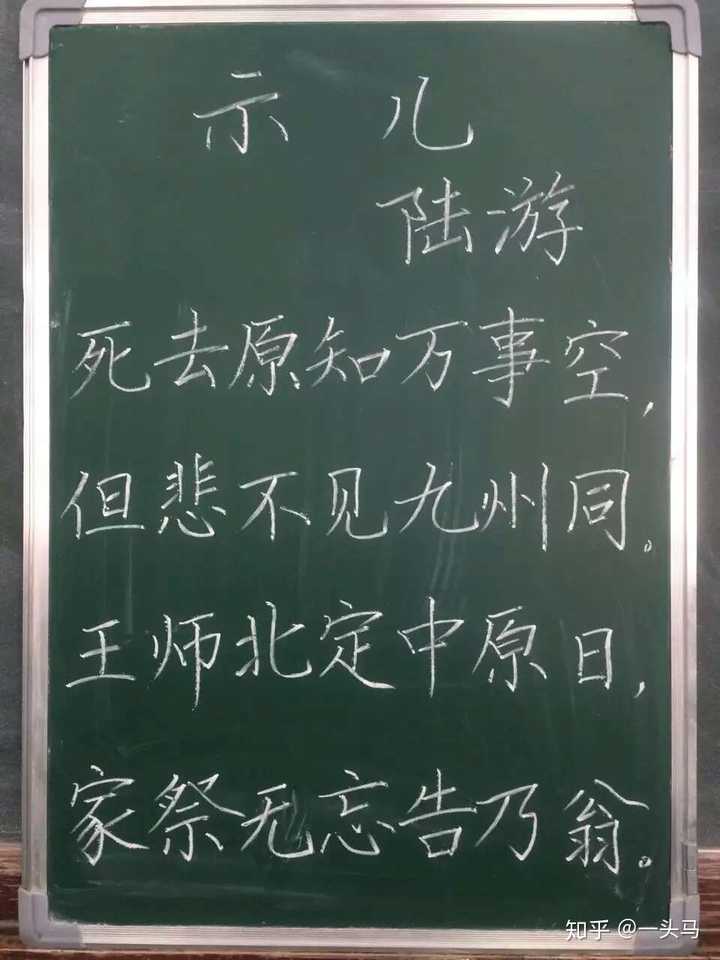 示儿
陆游
死去原知万事空，
但悲不见九州同。
王师北定中原日，
家祭无忘告乃翁。
知乎 @一头马